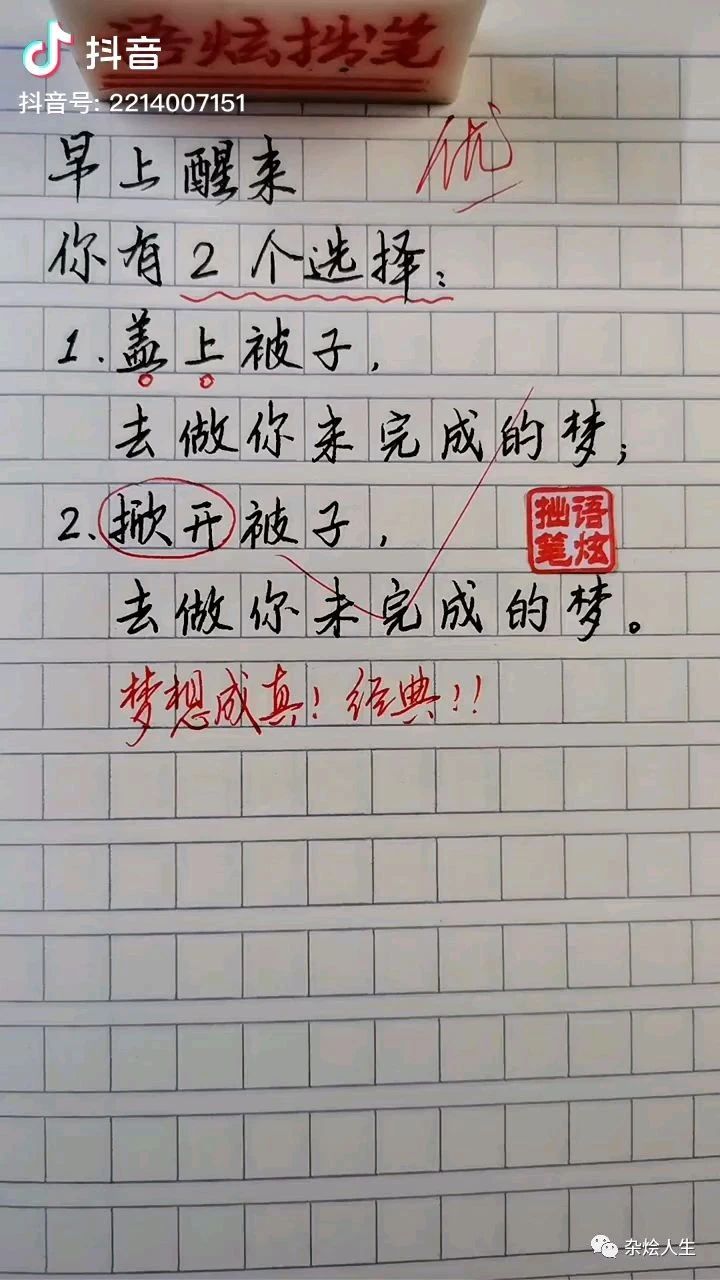 语炫拙笔
抖音
抖音号: 2214007151
优
早上醒来
你有2个选择：
1.盖上被子，
去做你未完成的梦；
2.掀开被子，
去做你未完成的梦。
语炫
拙笔
梦想成真！经典！！
杂烩人生